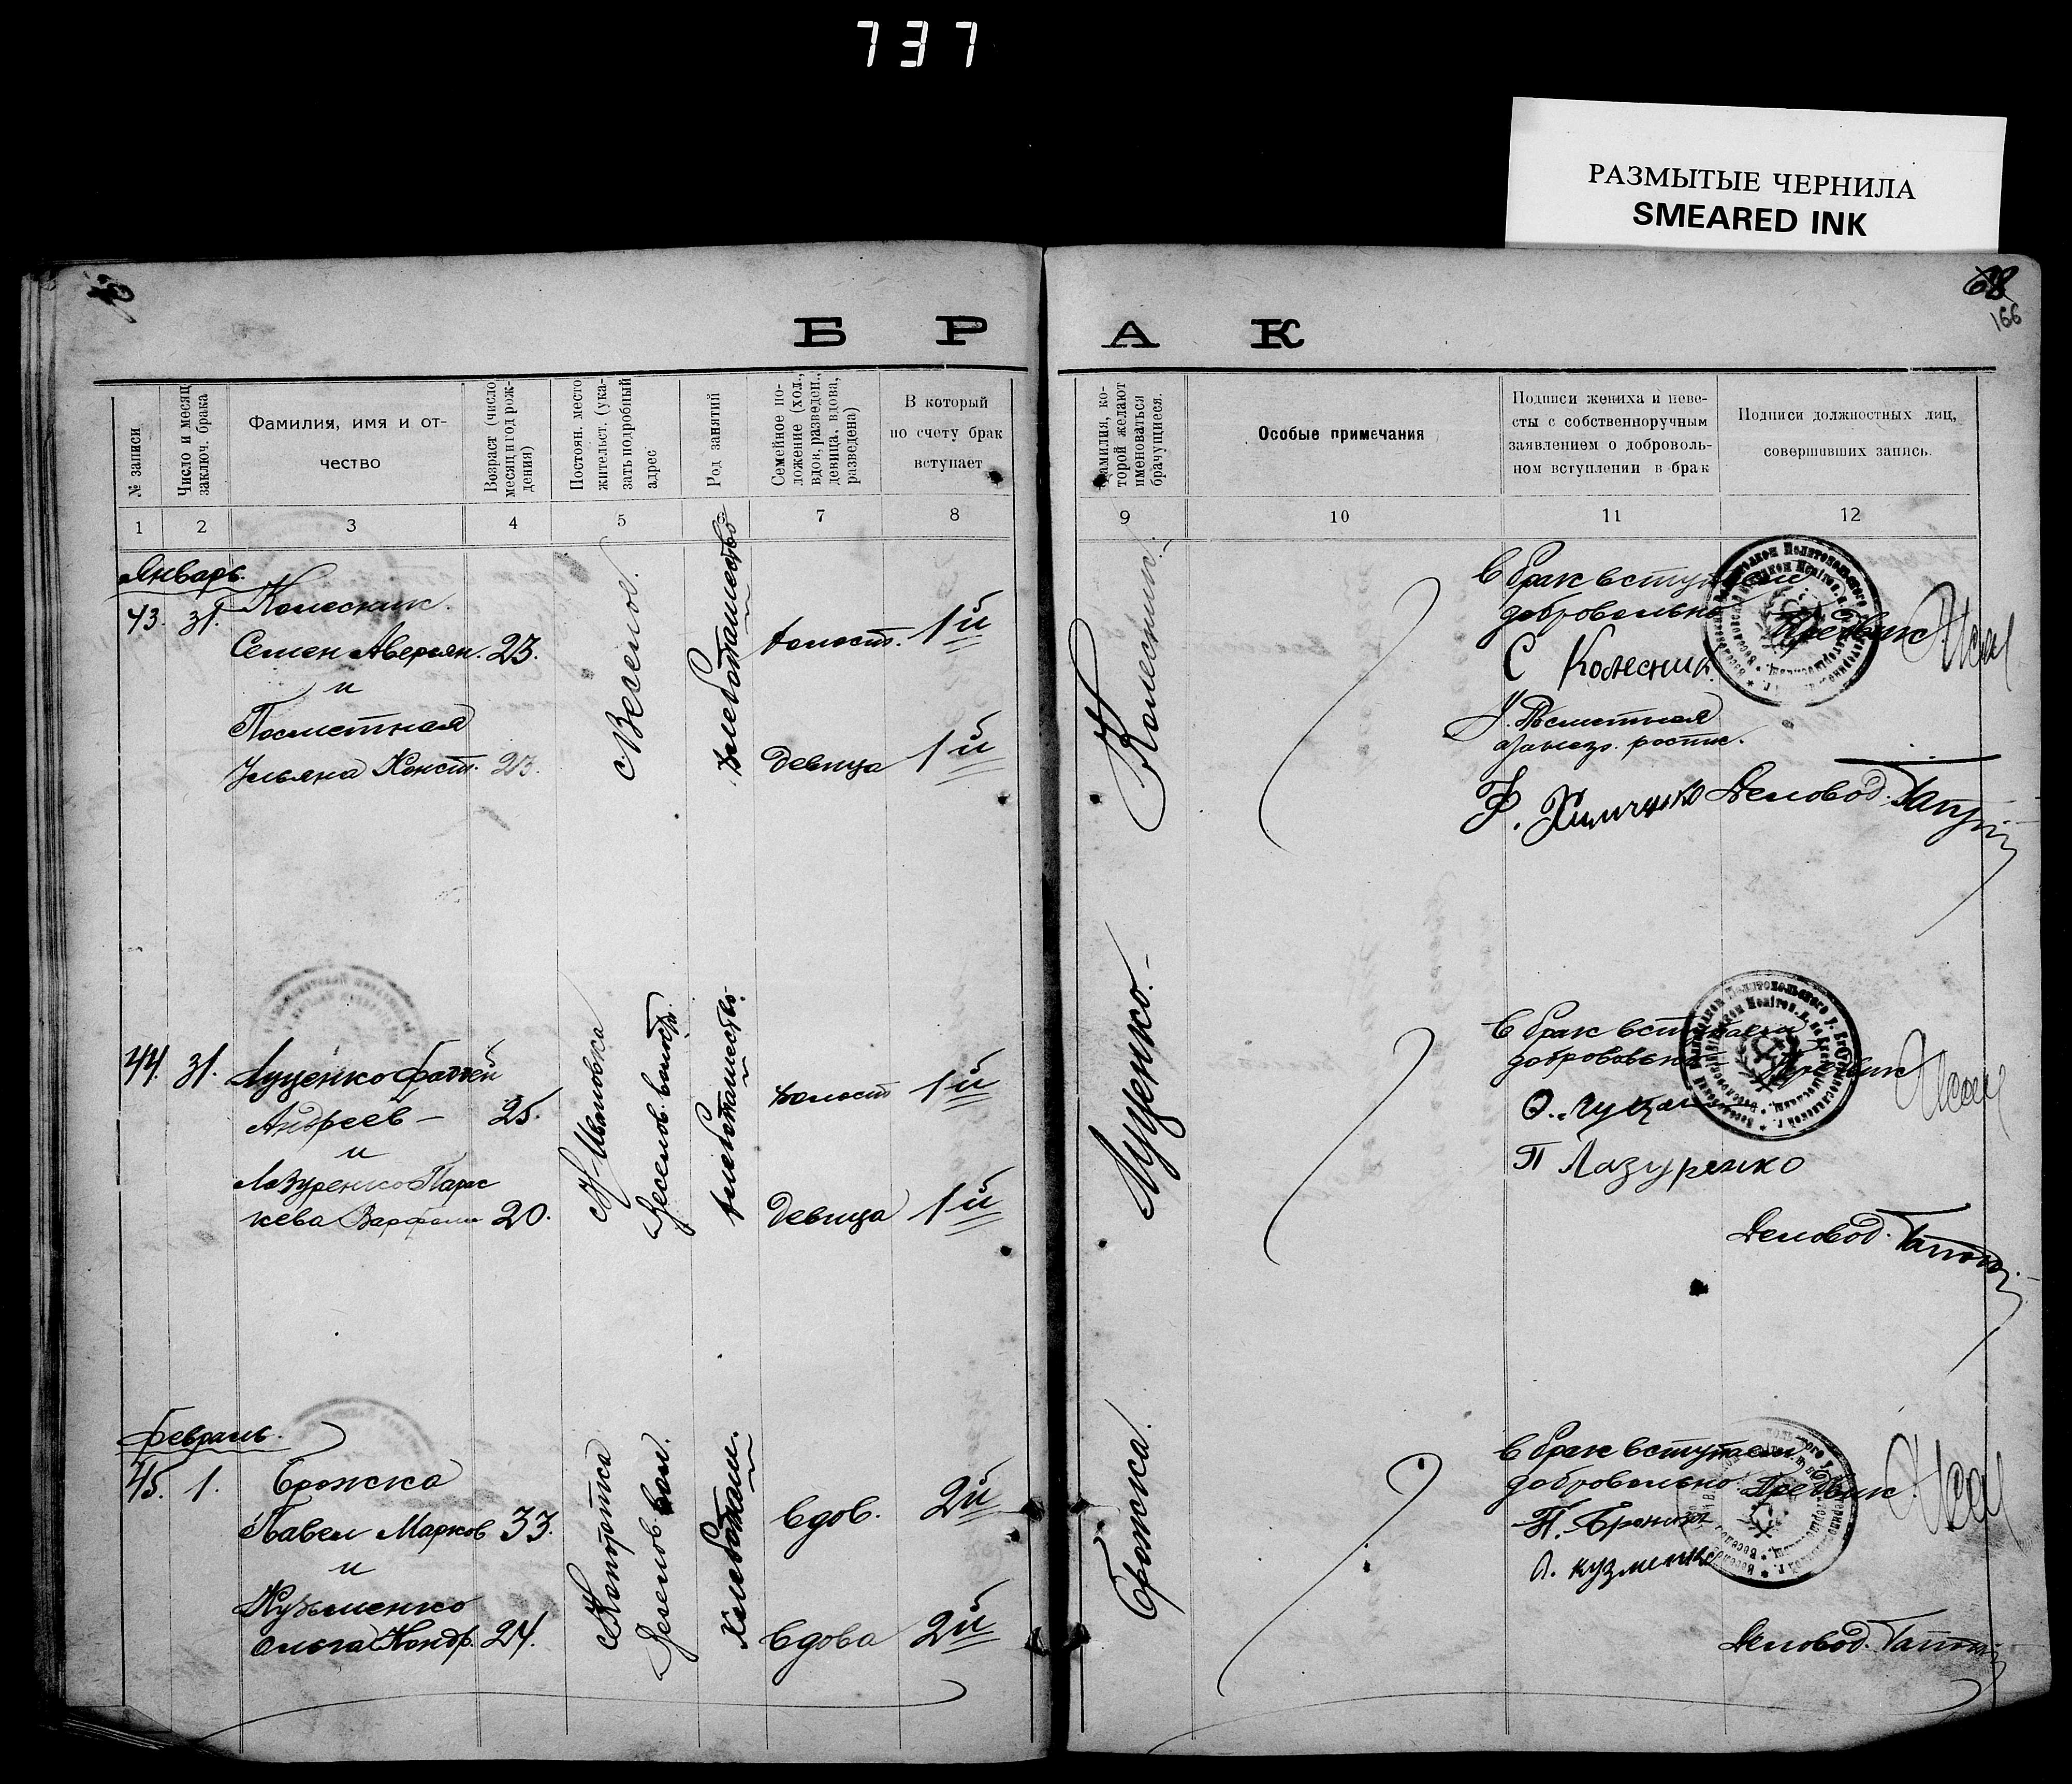 737
РАЗМЫТЫЕ ЧЕРНИЛА
SMEARED INK
68
166
БРАК
№ записи
Число и месяц
заключ. брака
Фамилия, имя и от-
чество
Возраст (число
месяц и год рож-
дения)
Постоян. место
жительст. (ука-
зать подробный
адрес
Род занятий
Семейное по-
ложение (хол.,
вдов, разведен.,
девица, вдова,
разведена)
В который
по счету брак
вступает
Фамилия, ко-
торой желают
именоваться
брачущиеся.
Особые примечания
Подписи жениха и неве-
сты с собственноручным
заявлением о доброволь-
ном вступлении в брак
Подписи должностных лиц,
совершивших запись.
1 2 3 4 5 7 8 9 10 11 12
Январь.
43. 31. Колесник
Семен Аверьян. 23.
и
Посметная
Ульяна Конст. 23.
с. Веселое.
Хлебопашество
холост. 1й
девица 1й
Колесник.
В брак вступаем
добровольно
С Колесник
У. Посметная
Деловод.
44. 31. Луценко Фаттей
Андреев 25.
и
Лазуренко Парас
кева 20.
Ивановка
Веселов. волости
Хлебопашество.
холост 1й
девица 1й
Луценко.
В брак вступаем
добровольно
П Лазуренко
Деловод.
Февраль.
45. 1. Брожка
Павел Марков 33.
и
Кузьменко
Ольга Кондр. 24.
Веселов. вол.
Хлебопаш.
вдов. 2й
вдова 2й
Брожка.
В брак вступаем
добровольно.
Деловод.